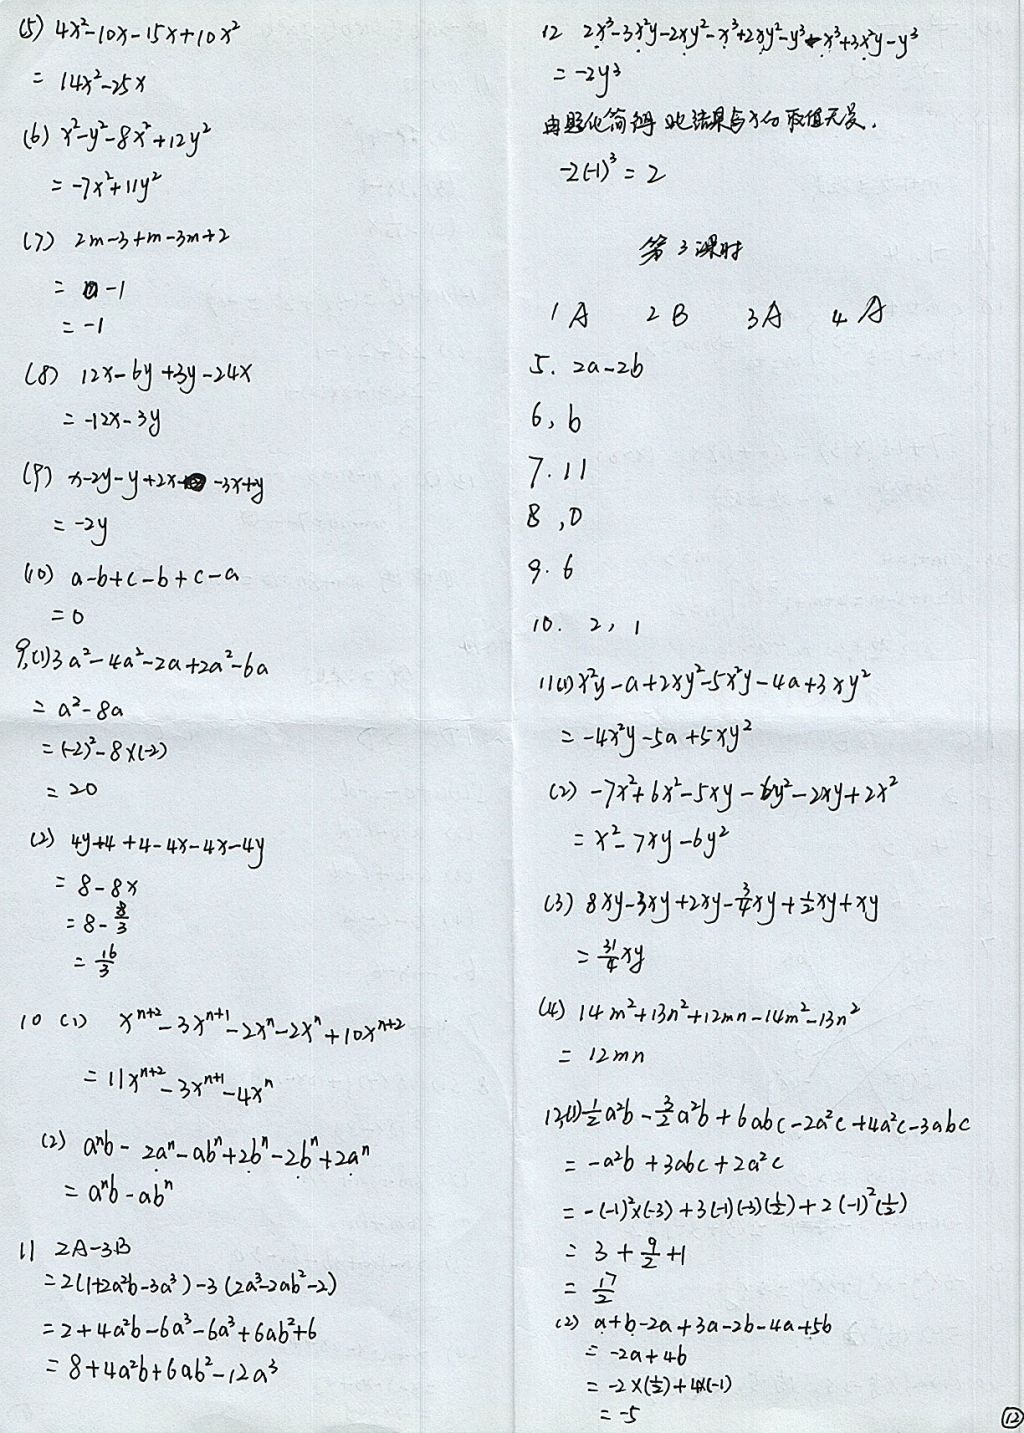 (5) 4x²-10x-15x+10x²
= 14x²-25x
(6) x²-y²-8x²+12y²
= -7x²+11y²
(7) 2m-3+m-3m+2
= -1
= -1
(8) 12x-6y+3y-24x
= -12x-3y
(9) x-2y-y+2x-3x+y
= -2y
(10) a-b+c-b+c-a
= 0
9,(1) 3a²-4a²-2a+2a²-6a
= a²-8a
= (-2)²-8×(-2)
= 20
(2) 4y+4+4-4x-4x-4y
= 8-8x
= 8-8/3
= 16/3
10 (1) xⁿ⁺²-3xⁿ⁺¹-2xⁿ-2xⁿ+10xⁿ⁺²
= 11xⁿ⁺²-3xⁿ⁺¹-4xⁿ
(2) aⁿb-2aⁿ-abⁿ+2bⁿ-2bⁿ+2aⁿ
= aⁿb-abⁿ
11 2A-3B
= 2(1+2a²b-3a³)-3(2a³-2ab²-2)
= 2+4a²b-6a³-6a³+6ab²+6
= 8+4a²b+6ab²-12a³
12 2x³-3x²y-2xy²-x³+2xy²-y³-x³+3x²y-y³
= -2y³
由题化简得 此结果与x的取值无关.
-2(-1)³ = 2
第3课时
1 A 2 B 3 A 4 A
5. 2a-2b
6, b
7. 11
8, 0
9. 6
10. 2, 1
11(1) x²y-a+2xy²-5x²y-4a+3xy²
= -4x²y-5a+5xy²
(2) -7x²+6x²-5xy-6y²-2xy+2x²
= x²-7xy-6y²
(3) 8xy-3xy+2xy-3/4xy+1/2xy+xy
= 31/4xy
(4) 14m²+13n²+12mn-14m²-13n²
= 12mn
12,(1) 1/2a²b-3/2a²b+6abc-2a²c+4a²c-3abc
= -a²b+3abc+2a²c
= -(-1)²×(-3)+3(-1)(-3)(1/2)+2(-1)²(1/2)
= 3+9/2+1
= 17/2
(2) a+b-2a+3a-2b-4a+5b
= -2a+4b
= -2×(1/2)+4×(-1)
= -5
⑫